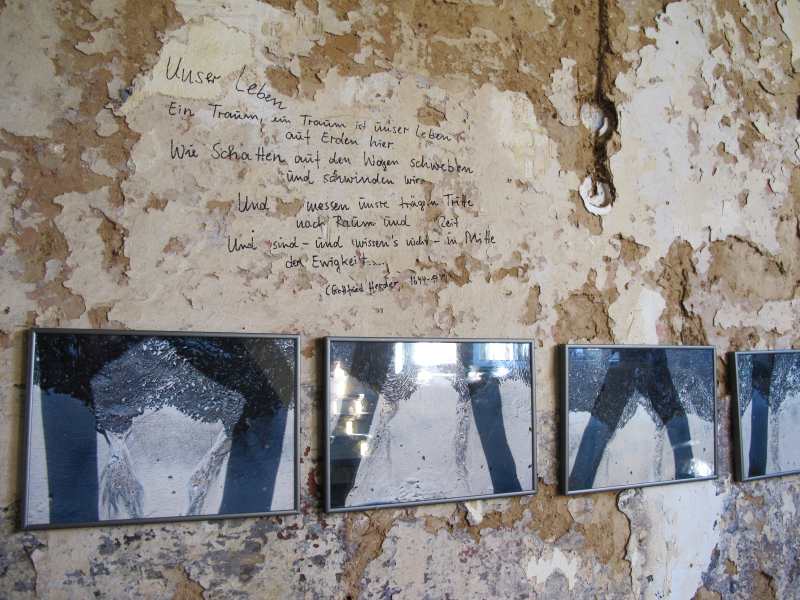 Unser Leben
Ein Traum, ein Traum ist unser Leben
auf Erden hier
Wie Schatten auf den Wogen schweben
und schwinden wir
Und messen unsre trägen Tritte
nach Raum und Zeit
Und sind - und wissen's nicht - in Mitte
der Ewigkeit....
(Gottfried Herder, 1644-